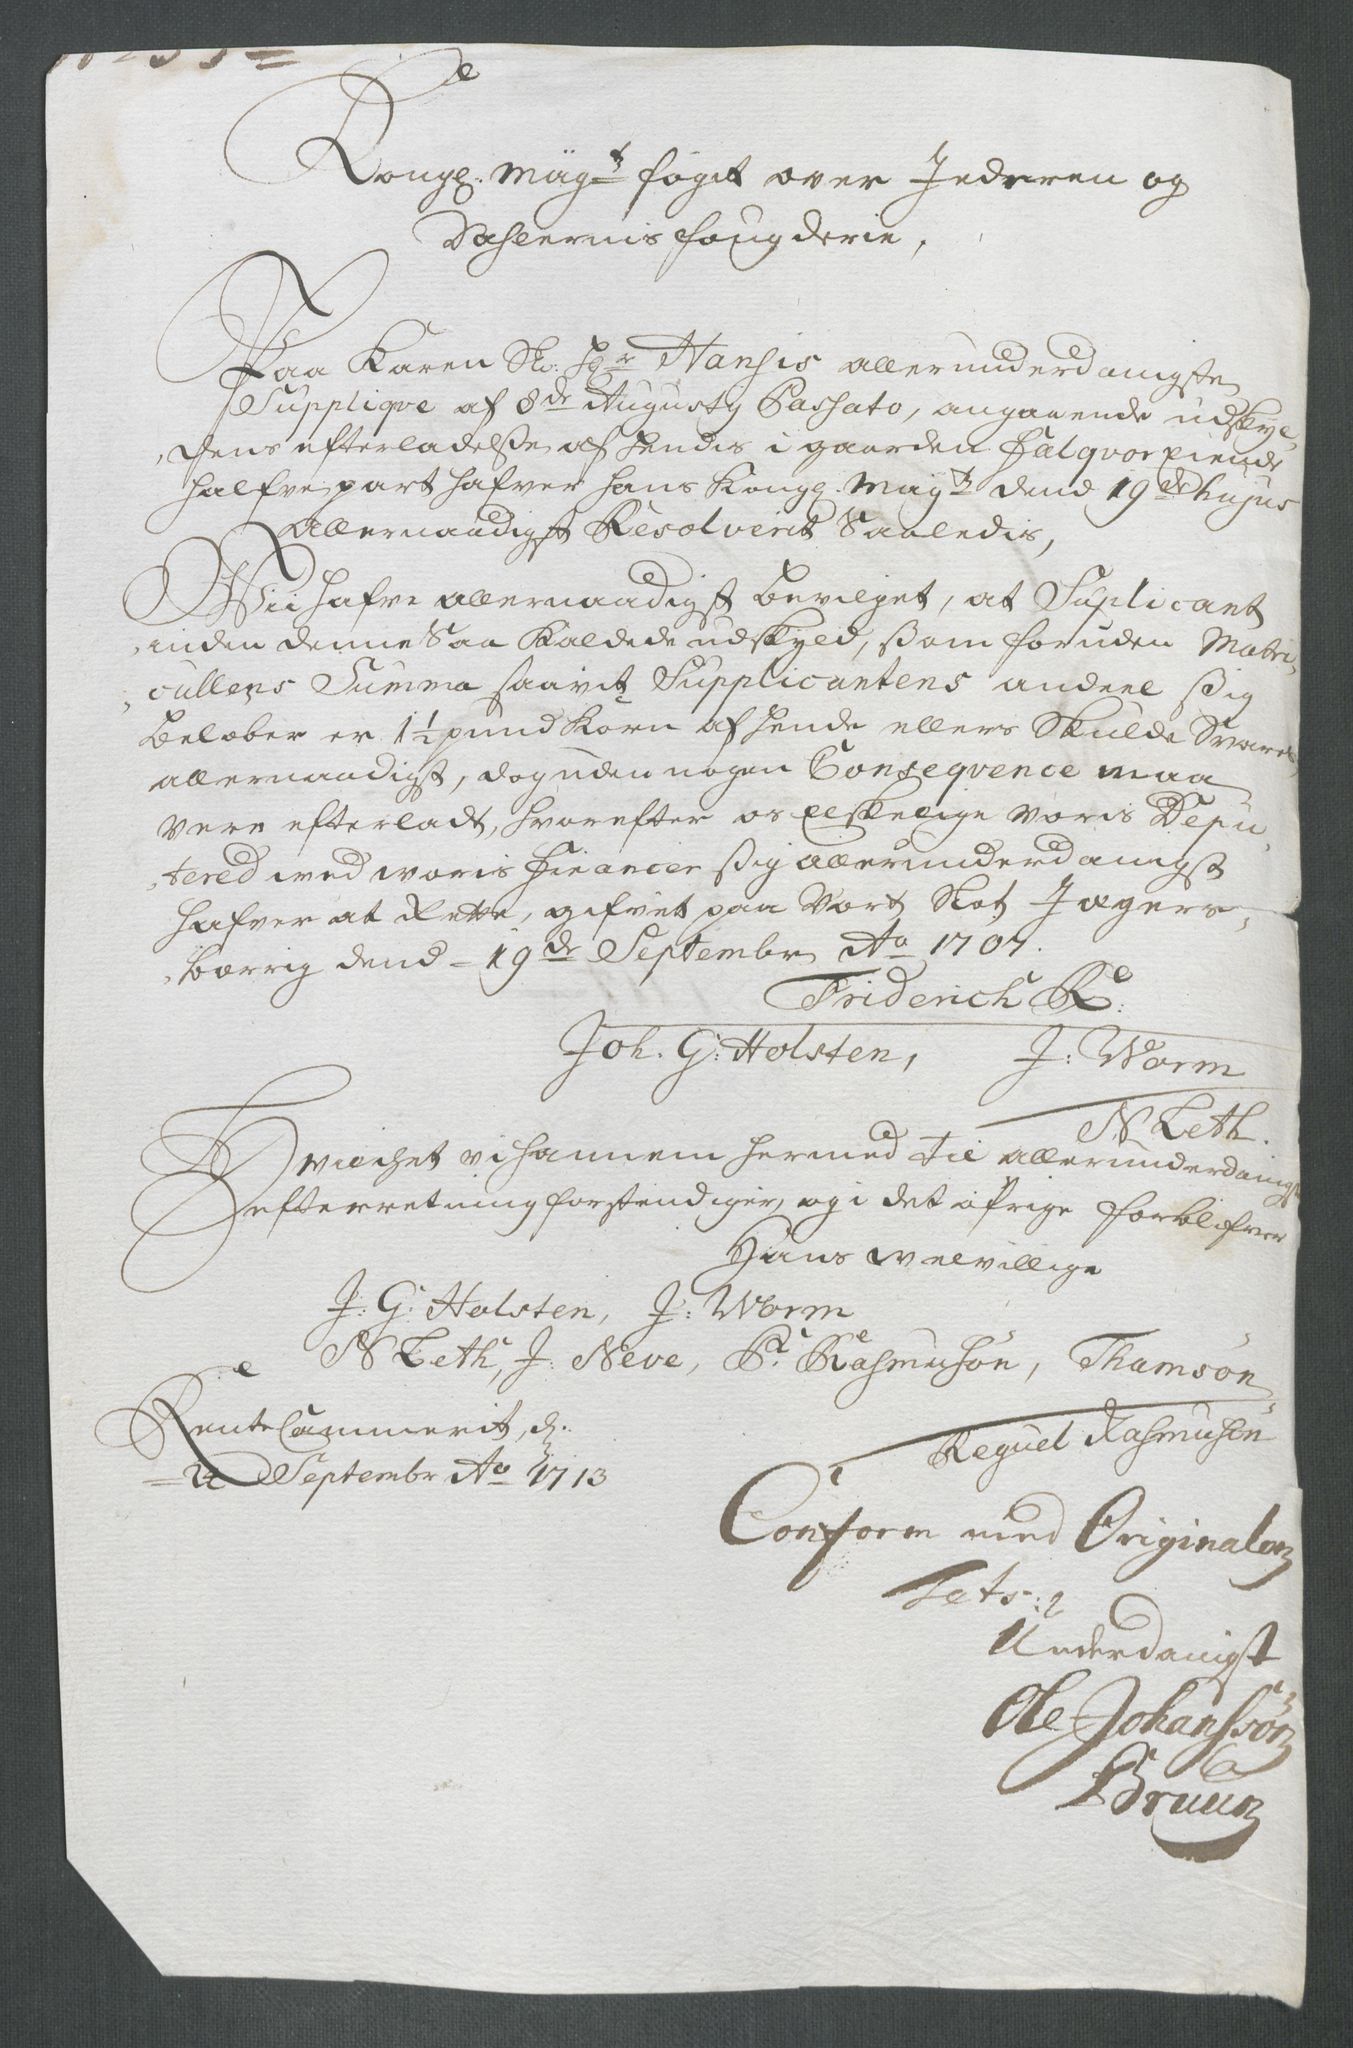 Kongl. Mayts foget over Jederen og
Dahlernis fougderie,
Paa Karen Sl. Hr Hansis allerunderdanigste
Supplique af 8de Augusty Passato, angaaende udskyl,
dens efterladelsse af hendis i gaarden eiende
halfve part hafver hans Kongl. Mayt dend 19de hujus
Allernaadigst Resolverit Saaledis,
Wii hafve allernaadigst bevilget, at Suplicant
inden denne Saa Kaldede udskyld, som foruden Matri,
cullens Summa saavit Supplicantens andeel sig
beløber er 1½ pund Korn af hende ellers Skulde Svares
allernaadigst, dog uden nogen Consequence maa
vere efterladt, hvorefter os elskelige voris Depu,
tered ved voris Financer sig allerunderdanigst
hafver at Rette, gifvet paa Vort Slot Jægers,
borrig dend 19de Septembr Ao 1707.
Friderich R:
Joh. G: Holsten, J: Worm
N Leth.
Hvilchet vi hannem hermed til allerunderdanigst
efterretning forstendiger, og i det øfrige forblifver
Hans velvillige
J: G: Holsten, J: Worm
N Leth, J: Neve, Pr. Rasmusøn, Thamsøn
Reguel Rasmusøn
Rente Cammerit, d.
24 Septembr Ao 1713
Conform med Originalen
Tets:
Underdanigst
Ole Johanssøn
Bruun